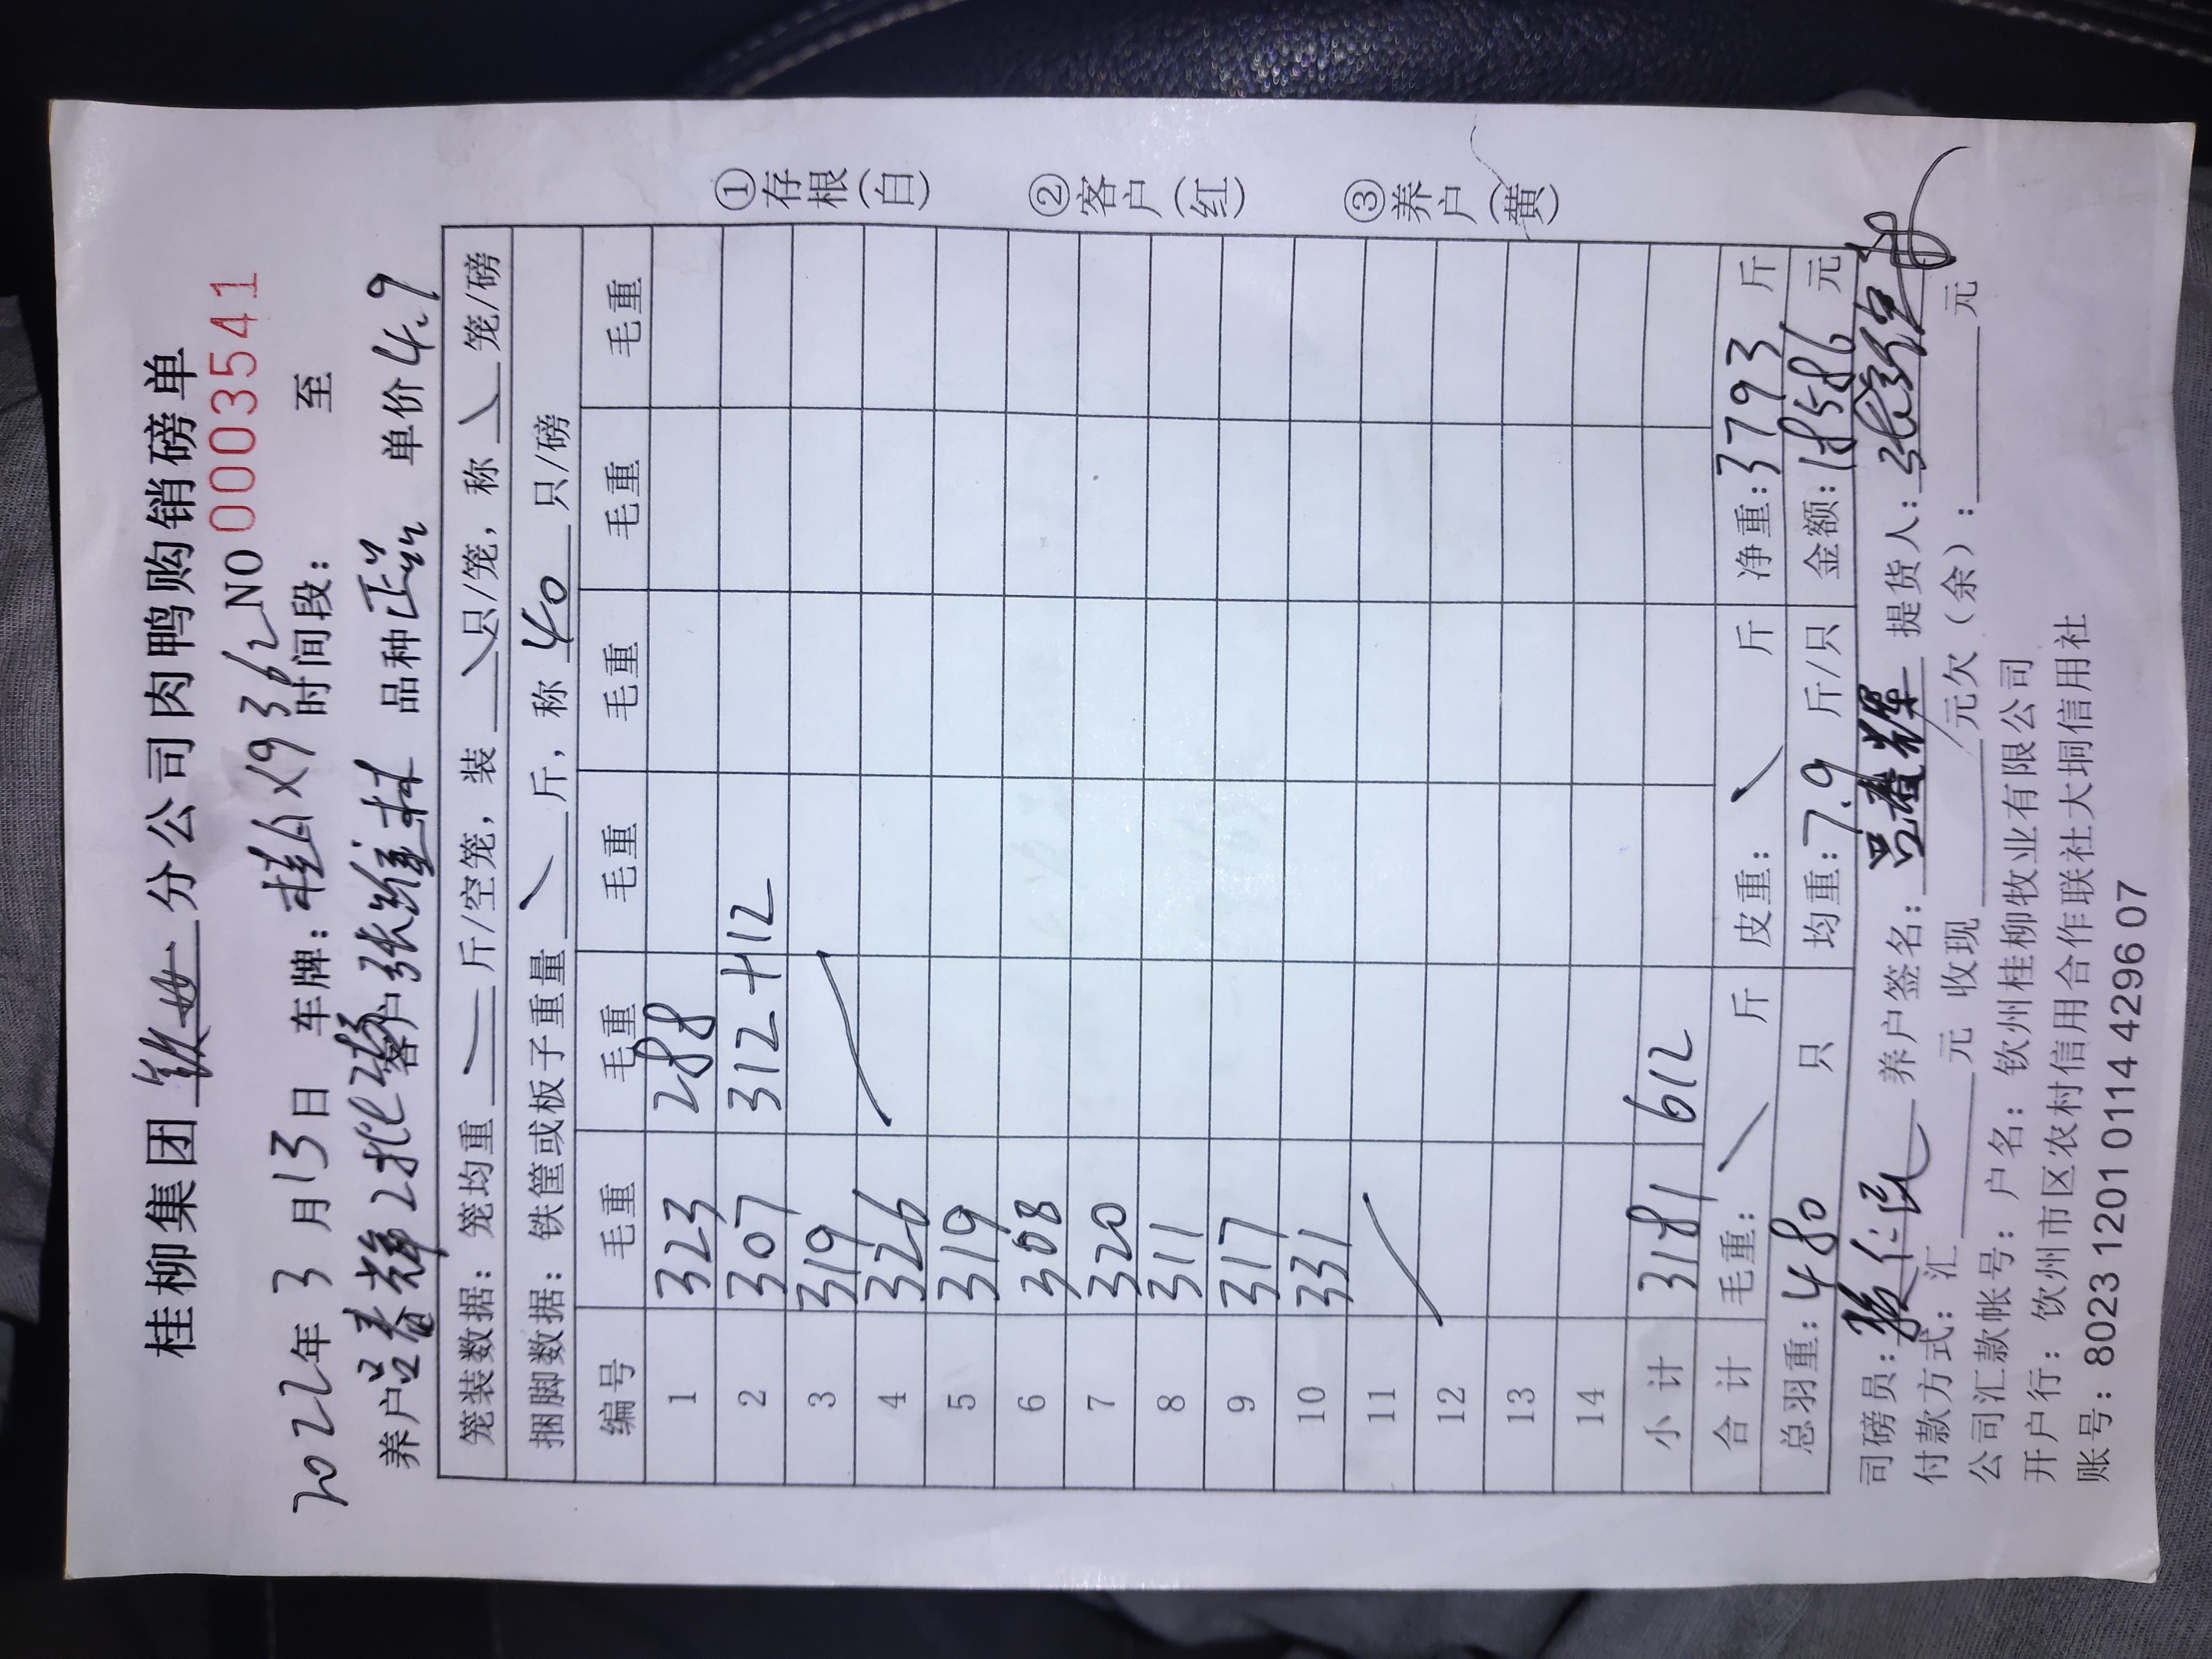 桂柳集团 钦州 分公司肉鸭购销磅单
2022年 3 月 13 日 车牌：桂A X9362 NO 0003541
时间段： 至
养户 吕春辉2批2 客户 张维林 品种 正 单价 4.9
笼装数据：笼均重 斤/空笼，装 只/笼，称 笼/磅
捆脚数据：铁筐或板子重量 斤，称 40 只/磅
编号 毛重 毛重 毛重 毛重 毛重 毛重
1 323 288
2 307 312+12
3 319
4 326
5 319
6 308
7 320
8 311
9 317
10 331
11
12
13
14
小计 3181 612
合计 毛重： 斤 皮重： 斤 净重：3793 斤
总羽重：480 只 均重：7.9 斤/只 金额：18586 元
司磅员： 养户签名：吕春辉 提货人：
付款方式：汇 元 收现 元欠（余）： 元
公司汇款帐号：户名：钦州桂柳牧业有限公司
开户行：饮州市区农村信用合作联社大垌信用社
账号：8023 1201 0114 4296 07
①存根（白）
②客户（红）
③养户（黄）